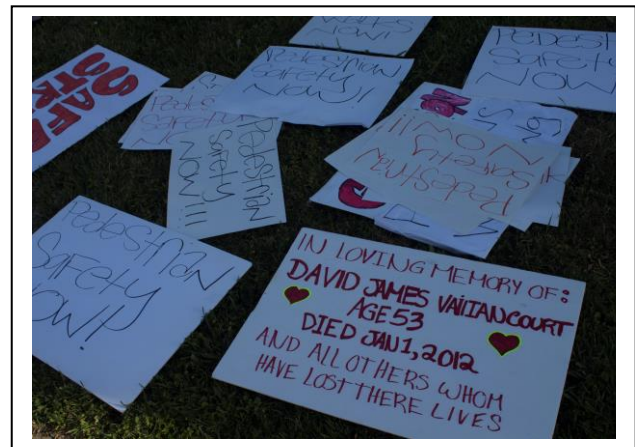 NOW!
PEDEST
SAFETY
NOW
PEDESTRIAN
SAFETY
NOW!
SAFE
STR
PEDES
SAFETY
NO
PEDESTRIAN
SAFETY
NOW!!!
PEDESTRIAN
SAFETY
NOW!!!
PEDESTRIAN
SAFETY
OW!
IN LOVING MEMORY OF:
DAVID JAMES VAIIANCOURT
AGE 53
DIED JAN 1, 2012
AND ALL OTHERS WHOM
HAVE LOST THERE LIVES